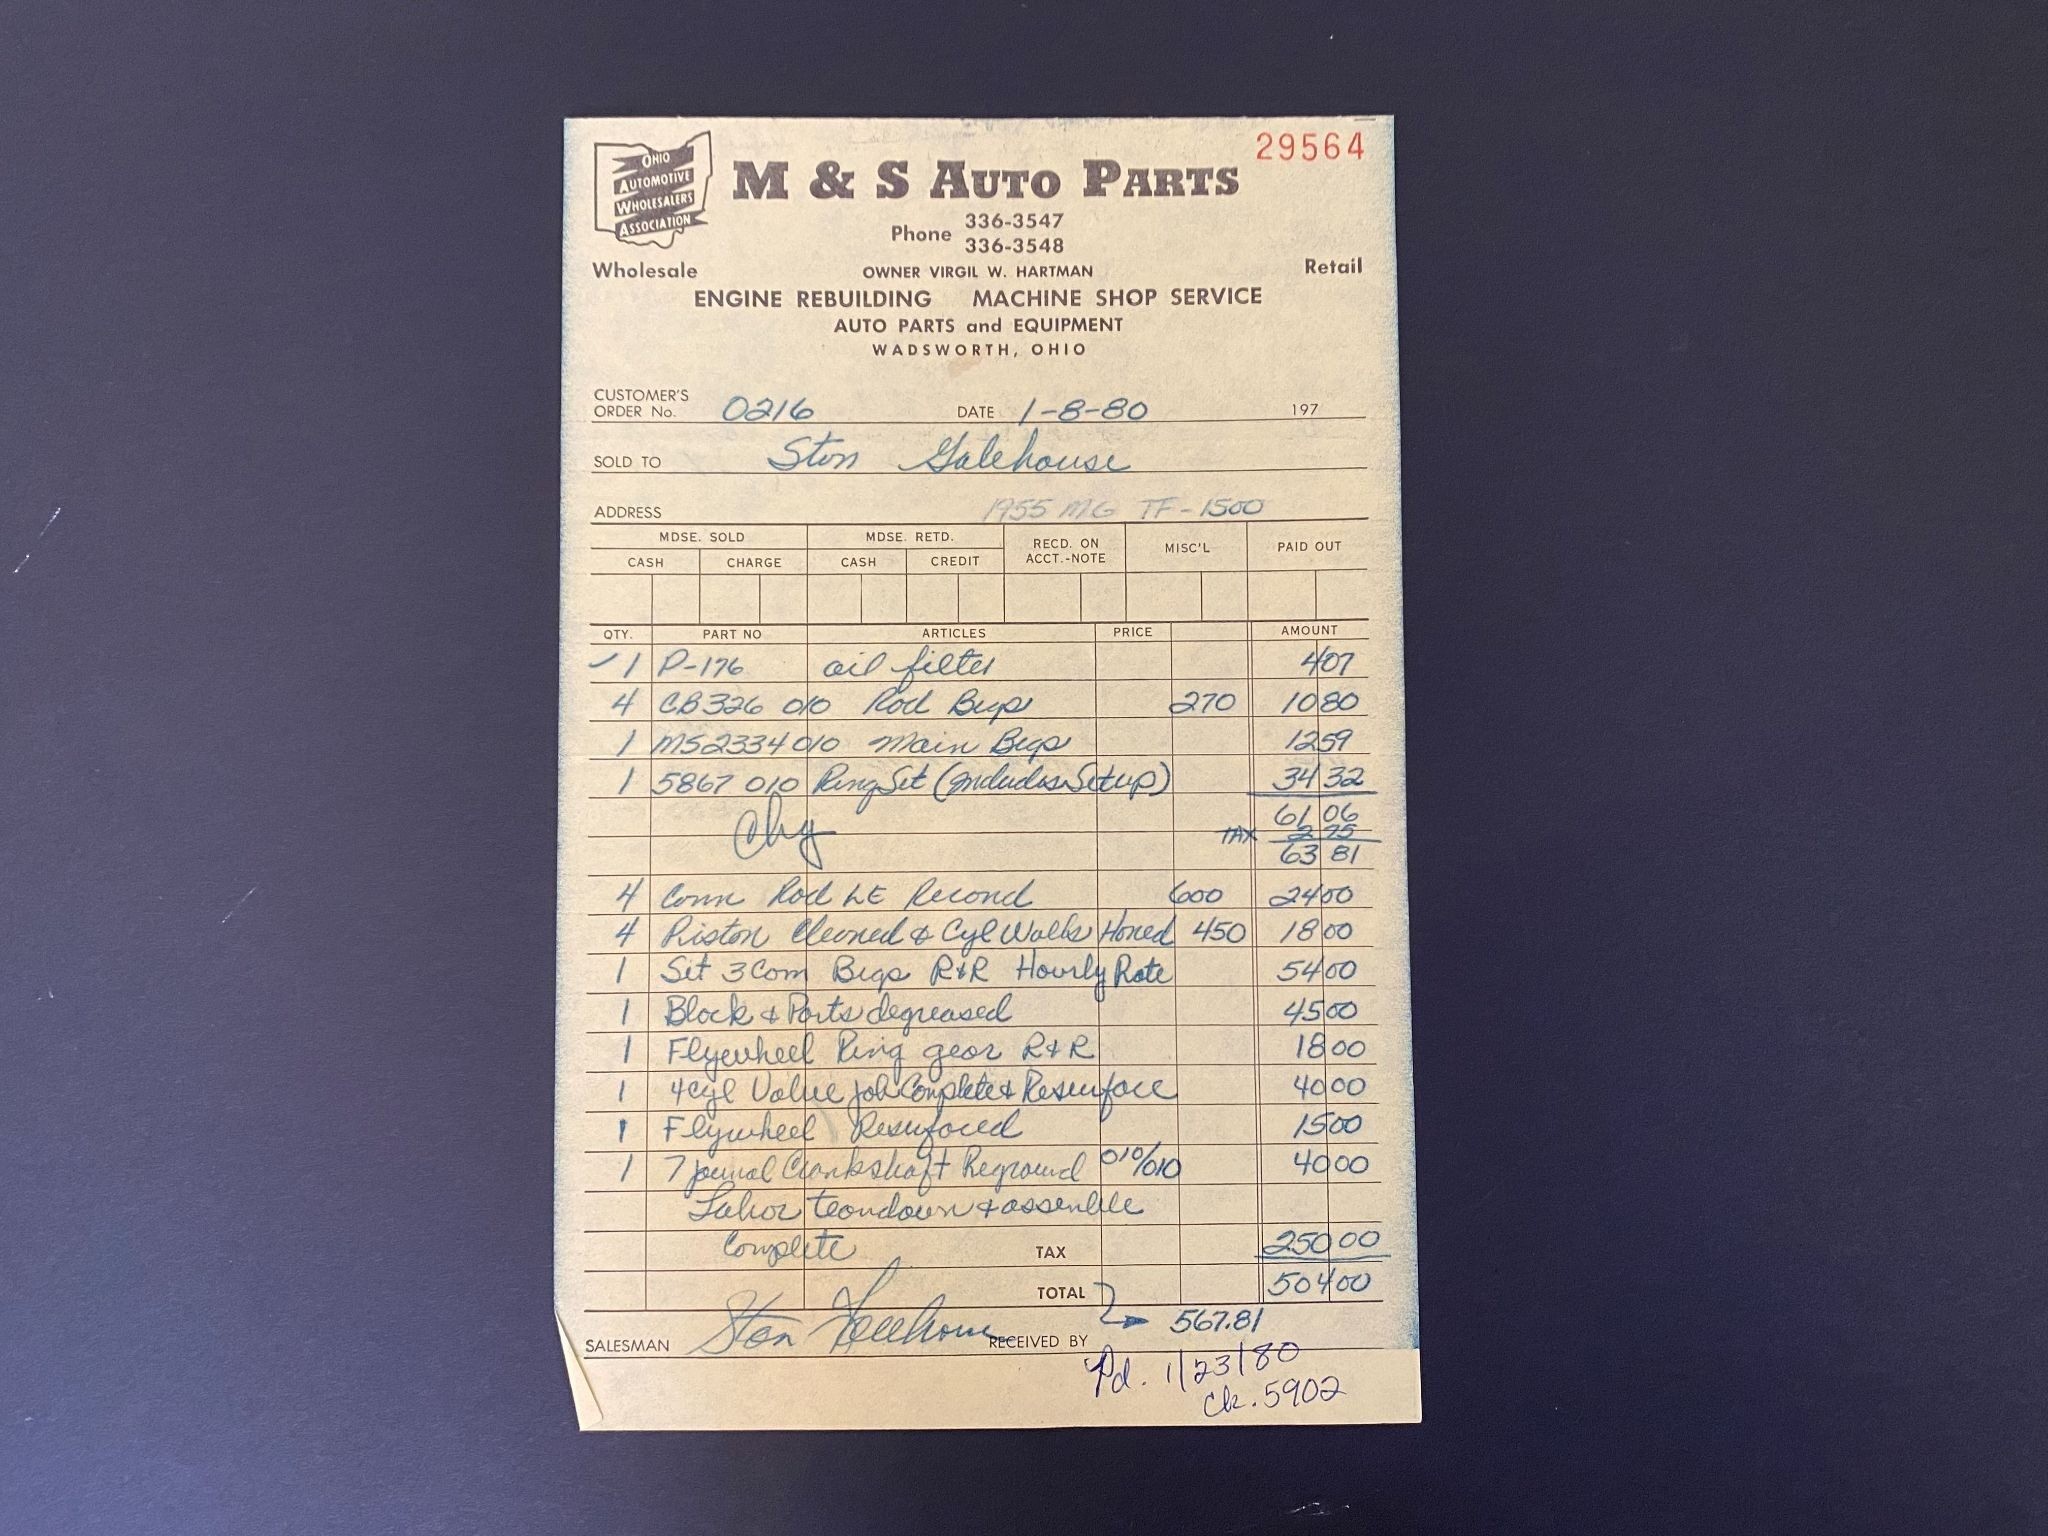 29564
OHIO
AUTOMOTIVE
WHOLESALERS
ASSOCIATION
M & S AUTO PARTS
Phone 336-3547
336-3548
Wholesale OWNER VIRGIL W. HARTMAN Retail
ENGINE REBUILDING MACHINE SHOP SERVICE
AUTO PARTS and EQUIPMENT
WADSWORTH, OHIO
CUSTOMER'S
ORDER No. 0216 DATE 1-8-80 197
SOLD TO Stan Galehouse
ADDRESS 1955 MG TF-1500
MDSE. SOLD MDSE. RETD. RECD. ON ACCT.-NOTE MISC'L PAID OUT
CASH CHARGE CASH CREDIT
QTY. PART NO ARTICLES PRICE AMOUNT
1 P-176 oil filter 4 07
4 CB326 010 Rod Brgs 270 10 80
1 MS2334 010 Main Brgs 12 59
1 5867 010 Ring Set (includes Setup) 34 32
61 06
Chg TAX 2 75
63 81
4 Conn Rod LE Recond 600 24 00
4 Piston Cleaned & Cyl Walls Honed 450 18 00
1 Set 3 Cam Brgs R&R Hourly Rate 54 00
1 Block & Parts degreased 45 00
1 Flywheel Ring gear R&R 18 00
1 4 cyl Valve job Complete & Resurface 40 00
1 Flywheel Resurfaced 15 00
1 7 journal Crankshaft Reground 010/010 40 00
Labor teardown & assemble
Complete TAX 250 00
TOTAL 504 00
567.81
SALESMAN Stan Galehouse RECEIVED BY
Pd. 1/23/80
Ck. 5902